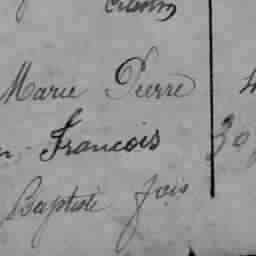 Marie Pierre
François 30
Baptiste fois